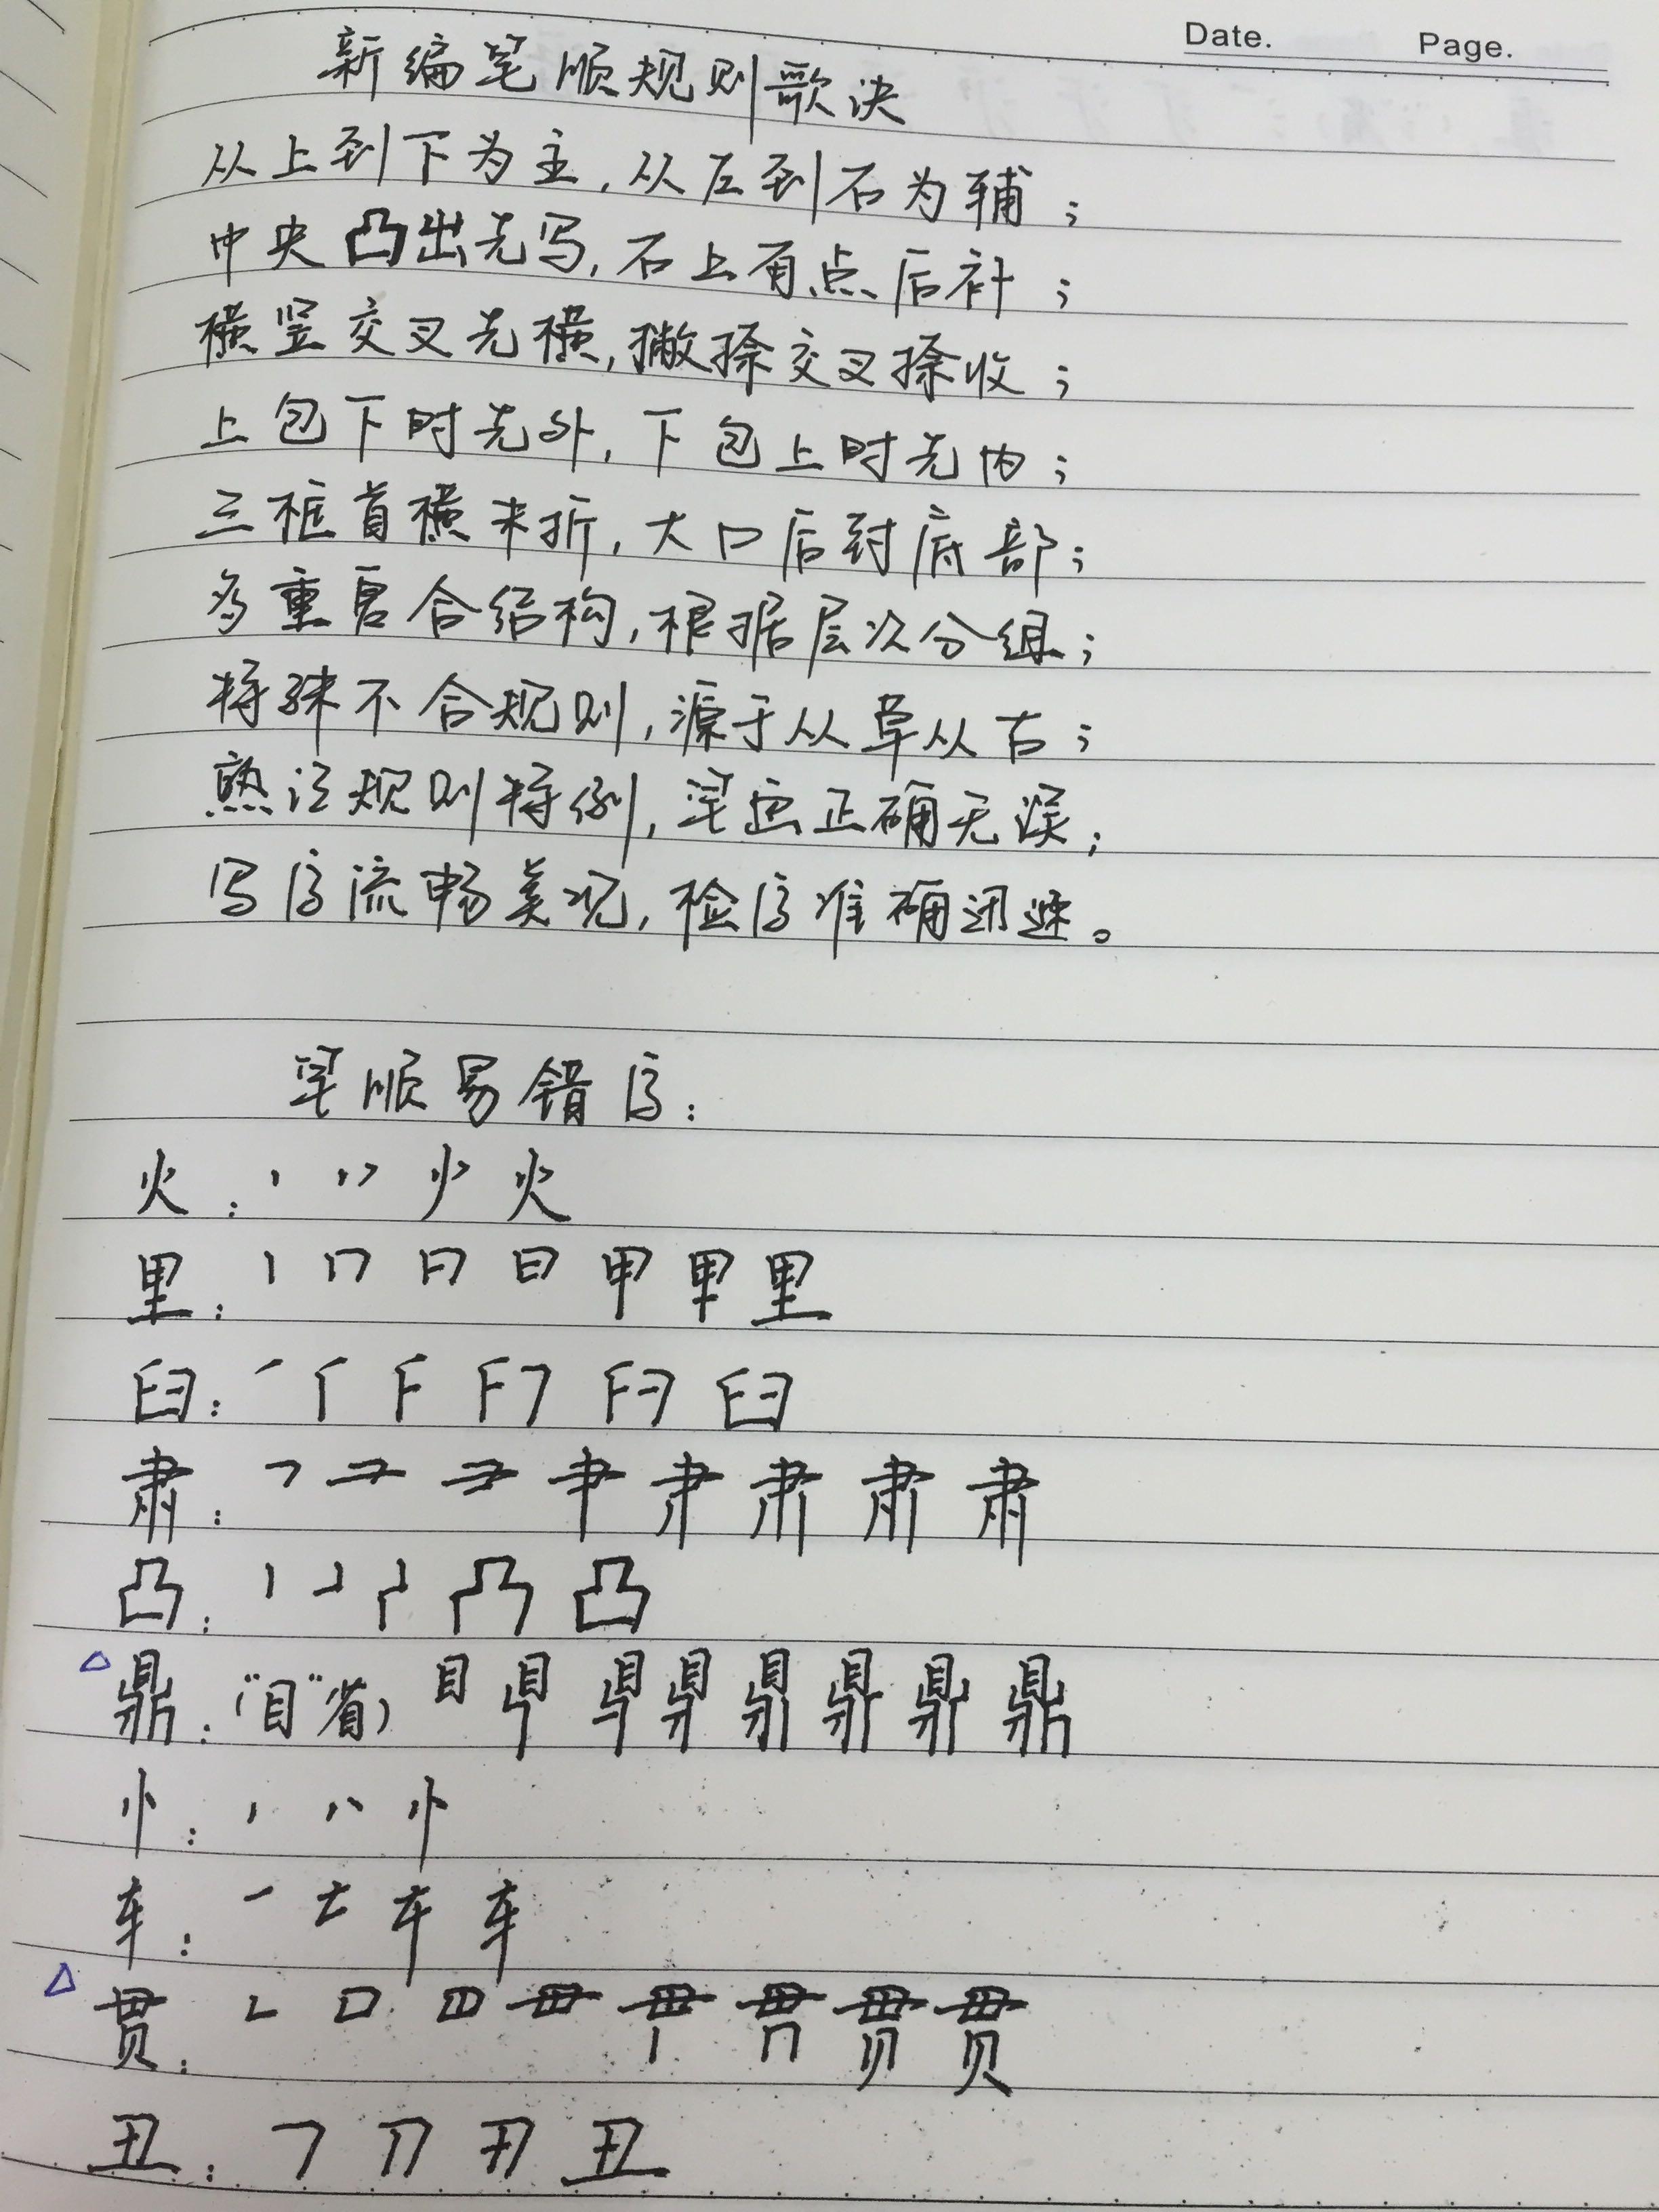 Date. Page.
新编笔顺规则歌诀
从上到下为主,从左到右为辅;
中央凸出先写,右上有点后补;
横竖交叉先横,撇捺交叉捺收;
上包下时先外,下包上时先内;
三框首横末折,大口后封底部;
多重复合结构,根据层次分组;
特殊不合规则,源于从草从古;
熟记规则特例,笔画正确无误;
写字流畅美观,检字准确迅速。
笔顺易错字:
火: 丶 丷 火
里: 丨 冂 日 甲 里
臼: 丿 臼
肃: ㇕ ⺕ 肀 肃
凸: 丨 凸
△鼎:("目"省) 目 鼎
忄: 丶 忄
车: 一 车
△贯: ㇗ 口 毌 贯
丑: ㇕ 丑